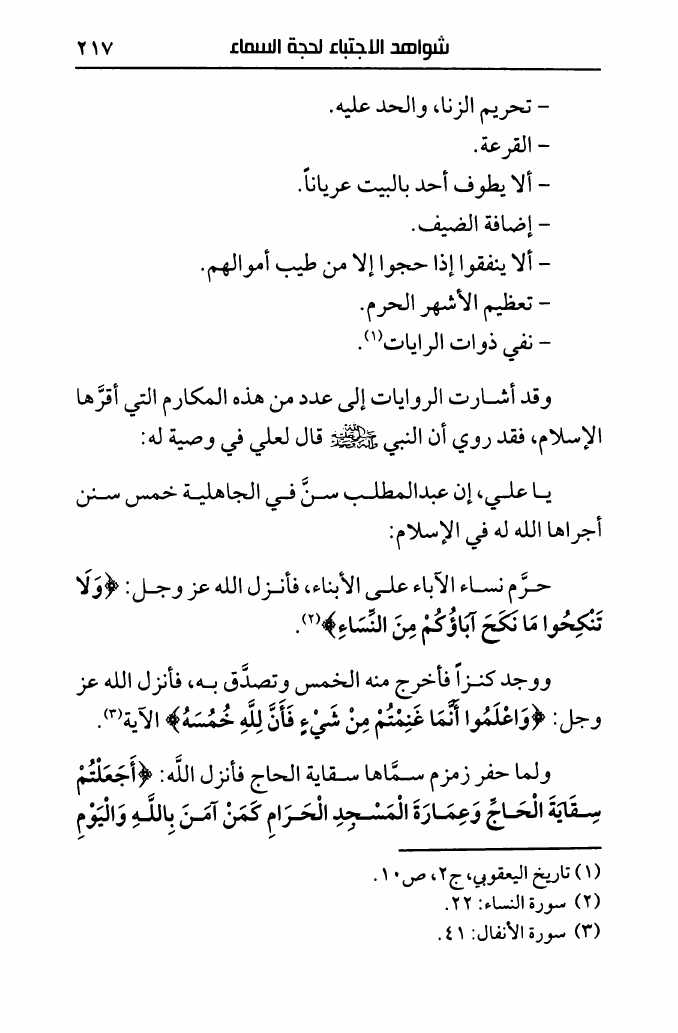 شواهد الاجتباء لحجة السماء ٢١٧
- تحريم الزنا، والحد عليه.
- القرعة.
- ألا يطوف أحد بالبيت عرياناً.
- إضافة الضيف.
- ألا ينفقوا إذا حجوا إلا من طيب أموالهم.
- تعظيم الأشهر الحرم.
- نفي ذوات الرايات(١).
وقد أشارت الروايات إلى عدد من هذه المكارم التي أقرَّها
الإسلام، فقد روي أن النبي ﷺ قال لعلي في وصية له:
يا علي، إن عبدالمطلب سنَّ في الجاهلية خمس سنن
أجراها الله له في الإسلام:
حرَّم نساء الآباء على الأبناء، فأنزل الله عز وجل: ﴿وَلَا
تَنْكِحُوا مَا نَكَحَ آبَاؤُكُمْ مِنَ النِّسَاءِ﴾(٢).
ووجد كنزاً فأخرج منه الخمس وتصدَّق به، فأنزل الله عز
وجل: ﴿وَاعْلَمُوا أَنَّمَا غَنِمْتُمْ مِنْ شَيْءٍ فَأَنَّ لِلَّهِ خُمُسَهُ﴾ الآية(٣).
ولما حفر زمزم سمَّاها سقاية الحاج فأنزل اللَّه: ﴿أَجَعَلْتُمْ
سِقَايَةَ الْحَاجِّ وَعِمَارَةَ الْمَسْجِدِ الْحَرَامِ كَمَنْ آمَنَ بِاللَّهِ وَالْيَوْمِ
(١) تاريخ اليعقوبي، ج٢، ص١٠.
(٢) سورة النساء: ٢٢.
(٣) سورة الأنفال: ٤١.